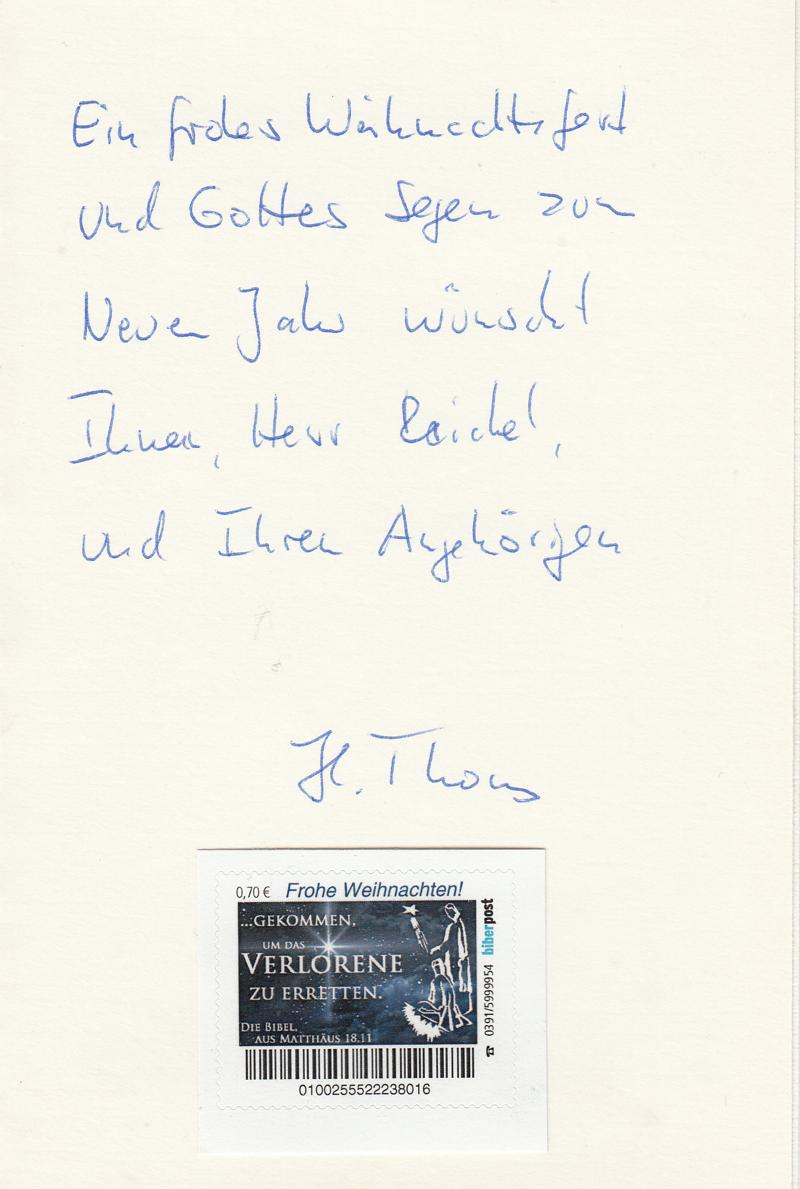 Ein frohes Weihnachtsfest
und Gottes Segen zum
Neuen Jahr wünscht
Ihnen, Herr Reichel,
und Ihren Angehörigen
H. Thoms
0,70 € Frohe Weihnachten!
...GEKOMMEN,
UM DAS
VERLORENE
ZU ERRETTEN.
DIE BIBEL,
AUS MATTHÄUS 18.11
0391/5999954 biberpost
0100255522238016